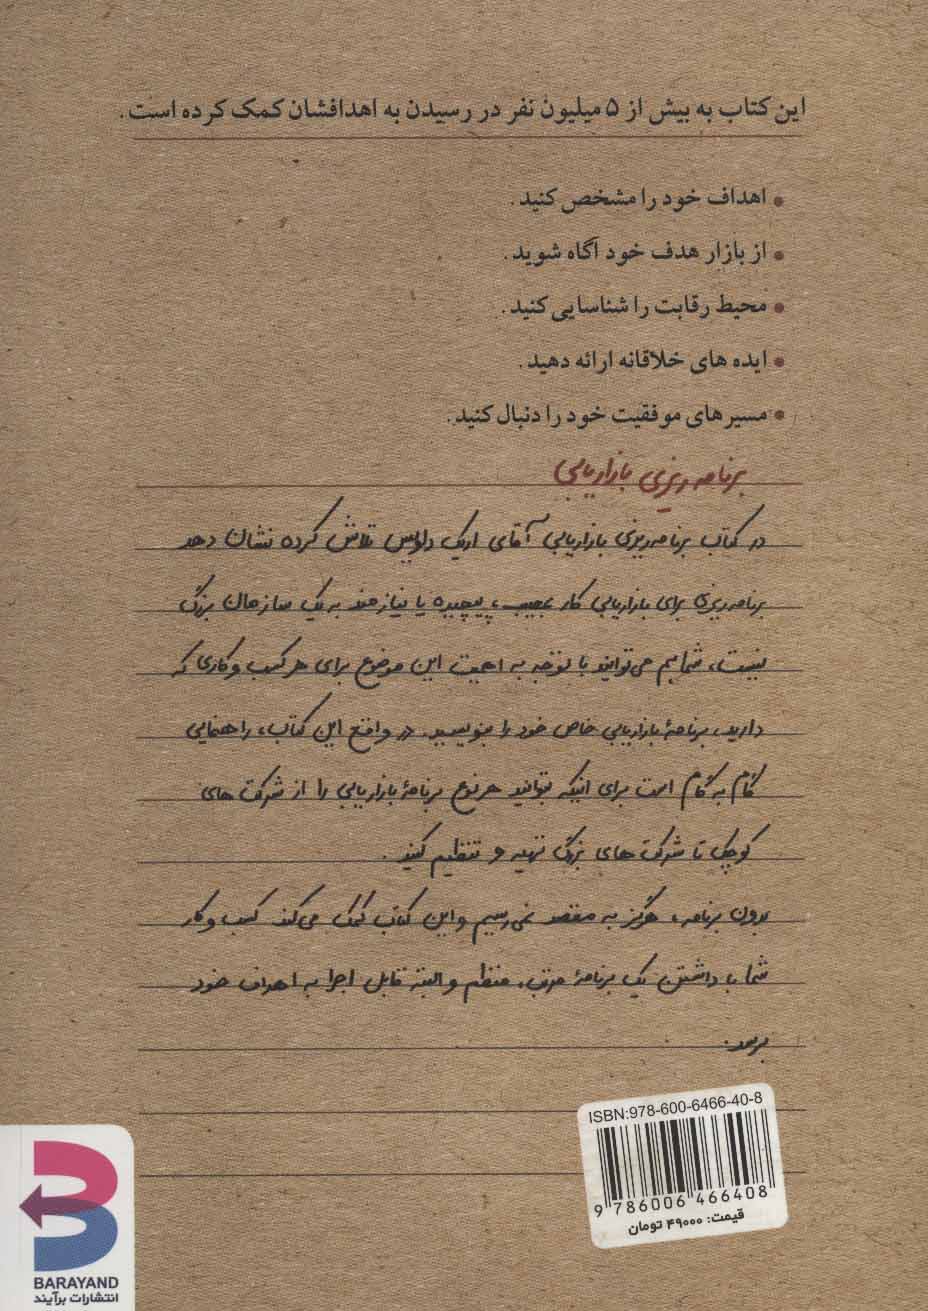 این کتاب به بیش از ۵ میلیون نفر در رسیدن به اهدافشان کمک کرده است.
• اهداف خود را مشخص کنید.
• از بازار هدف خود آگاه شوید.
• محیط رقابت را شناسایی کنید.
• ایده های خلاقانه ارائه دهید.
• مسیرهای موفقیت خود را دنبال کنید.
برنامه ریزی بازاریابی
در کتاب برنامه‌ریزی بازاریابی آقای اریک دلوایس تلاش کرده نشان دهد
برنامه‌ریزی برای بازاریابی کار عجیب، پیچیده یا نیازمند به یک سازمان بزرگ
نیست، شما هم می‌توانید با توجه به اهمیت این موضوع برای هر کسب و کاری که
دارید، برنامهٔ بازاریابی خاص خود را بنویسید. در واقع این کتاب، راهنمایی
گام به گام است برای اینکه بتوانید هر نوع برنامهٔ بازاریابی را از شرکت های
کوچک تا شرکت های بزرگ تهیه و تنظیم کنید.
بدون برنامه، هرگز به مقصد نمی‌رسیم و این کتاب کمک می‌کند کسب و کار
شما با داشتن یک برنامهٔ مرتب، منظم و البته قابل اجرا به اهداف خود
برسد.
ISBN:978-600-6466-40-8
9 786006 466408
قیمت: ۴۹۰۰۰ تومان
BARAYAND
انتشارات برآیند